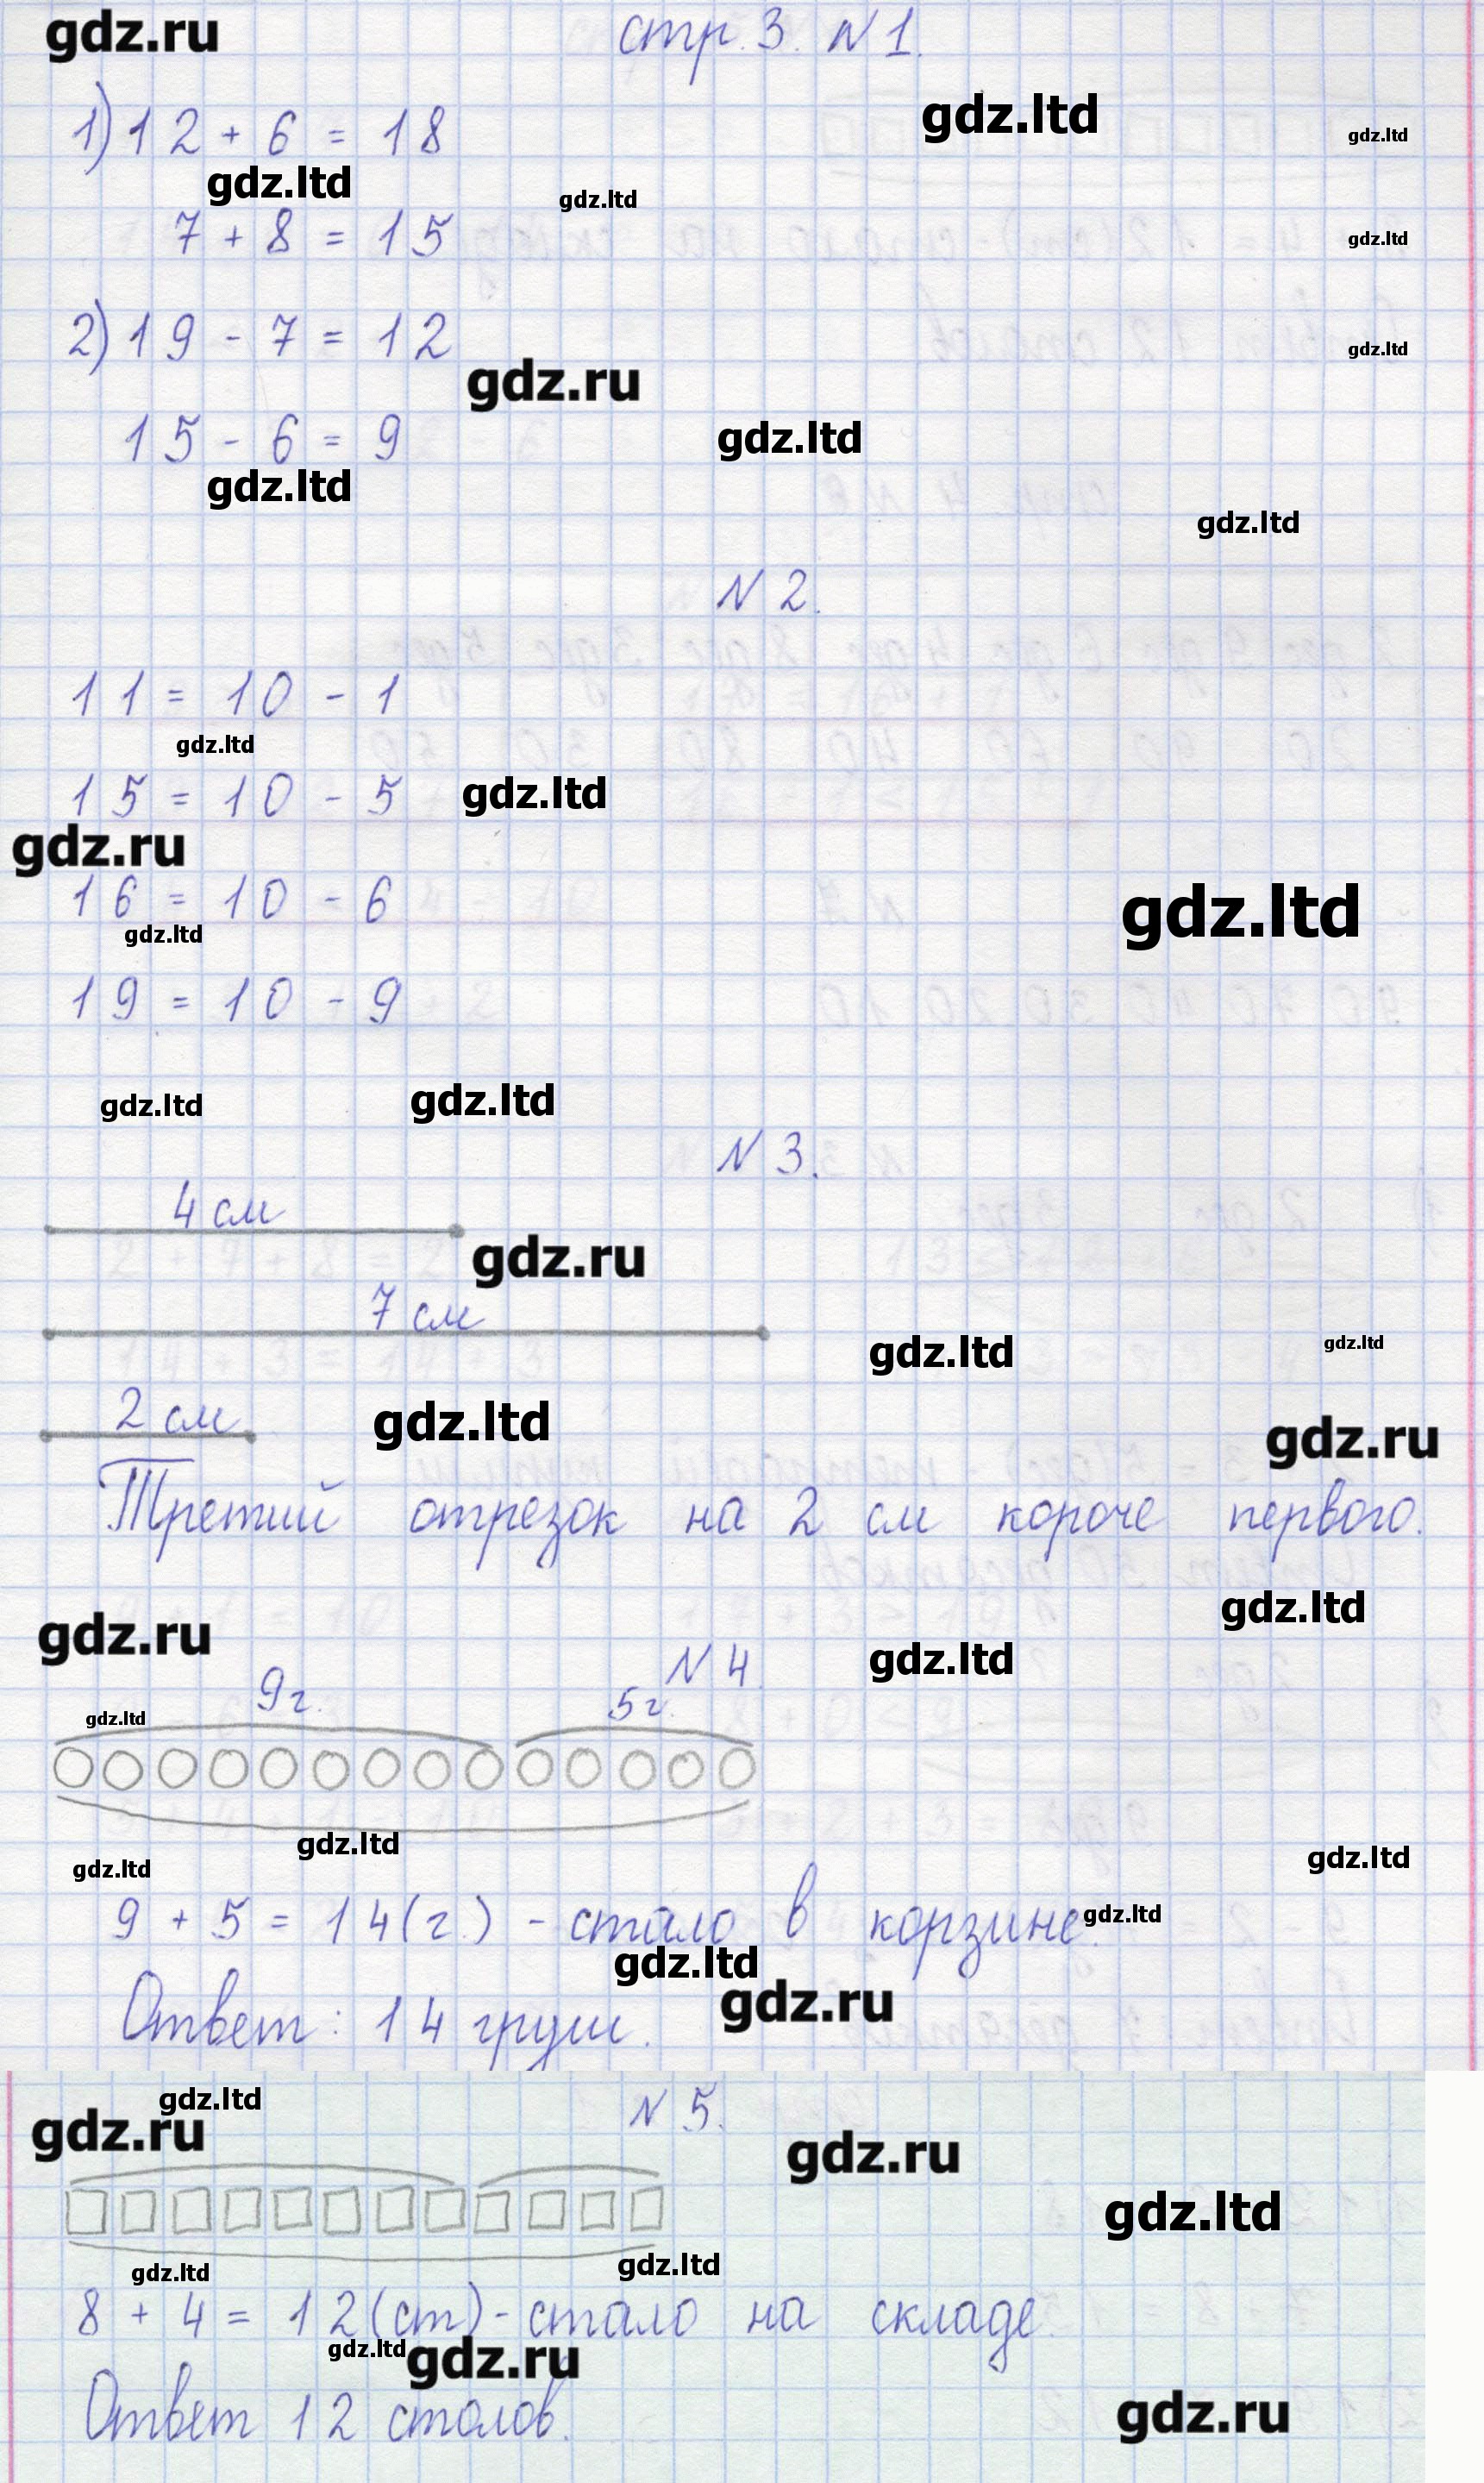 gdz.ru
стр. 3. N 1.
gdz.ltd
gdz.ltd
1) 12 + 6 = 18
gdz.ltd
gdz.ltd
7 + 8 = 15
gdz.ltd
2) 19 - 7 = 12
gdz.ltd
gdz.ru
15 - 6 = 9
gdz.ltd
gdz.ltd
gdz.ltd
N 2.
11 = 10 - 1
gdz.ltd
15 = 10 - 5
gdz.ltd
gdz.ru
16 = 10 - 6
gdz.ltd
gdz.ltd
19 = 10 - 9
gdz.ltd
gdz.ltd
N 3.
4 см
gdz.ru
7 см
gdz.ltd
gdz.ltd
2 см
gdz.ltd
gdz.ru
Третий отрезок на 2 см короче первого.
gdz.ltd
gdz.ru
N 4.
gdz.ltd
9 г.
5 г.
gdz.ltd
gdz.ltd
gdz.ltd
gdz.ltd
9 + 5 = 14 (г.) - стало в корзине.
gdz.ltd
gdz.ltd
gdz.ru
Ответ: 14 груш.
gdz.ltd
N 5.
gdz.ru
gdz.ru
gdz.ltd
gdz.ltd
gdz.ltd
8 + 4 = 12 (ст) - стало на складе.
gdz.ltd
gdz.ru
Ответ 12 столов.
gdz.ru